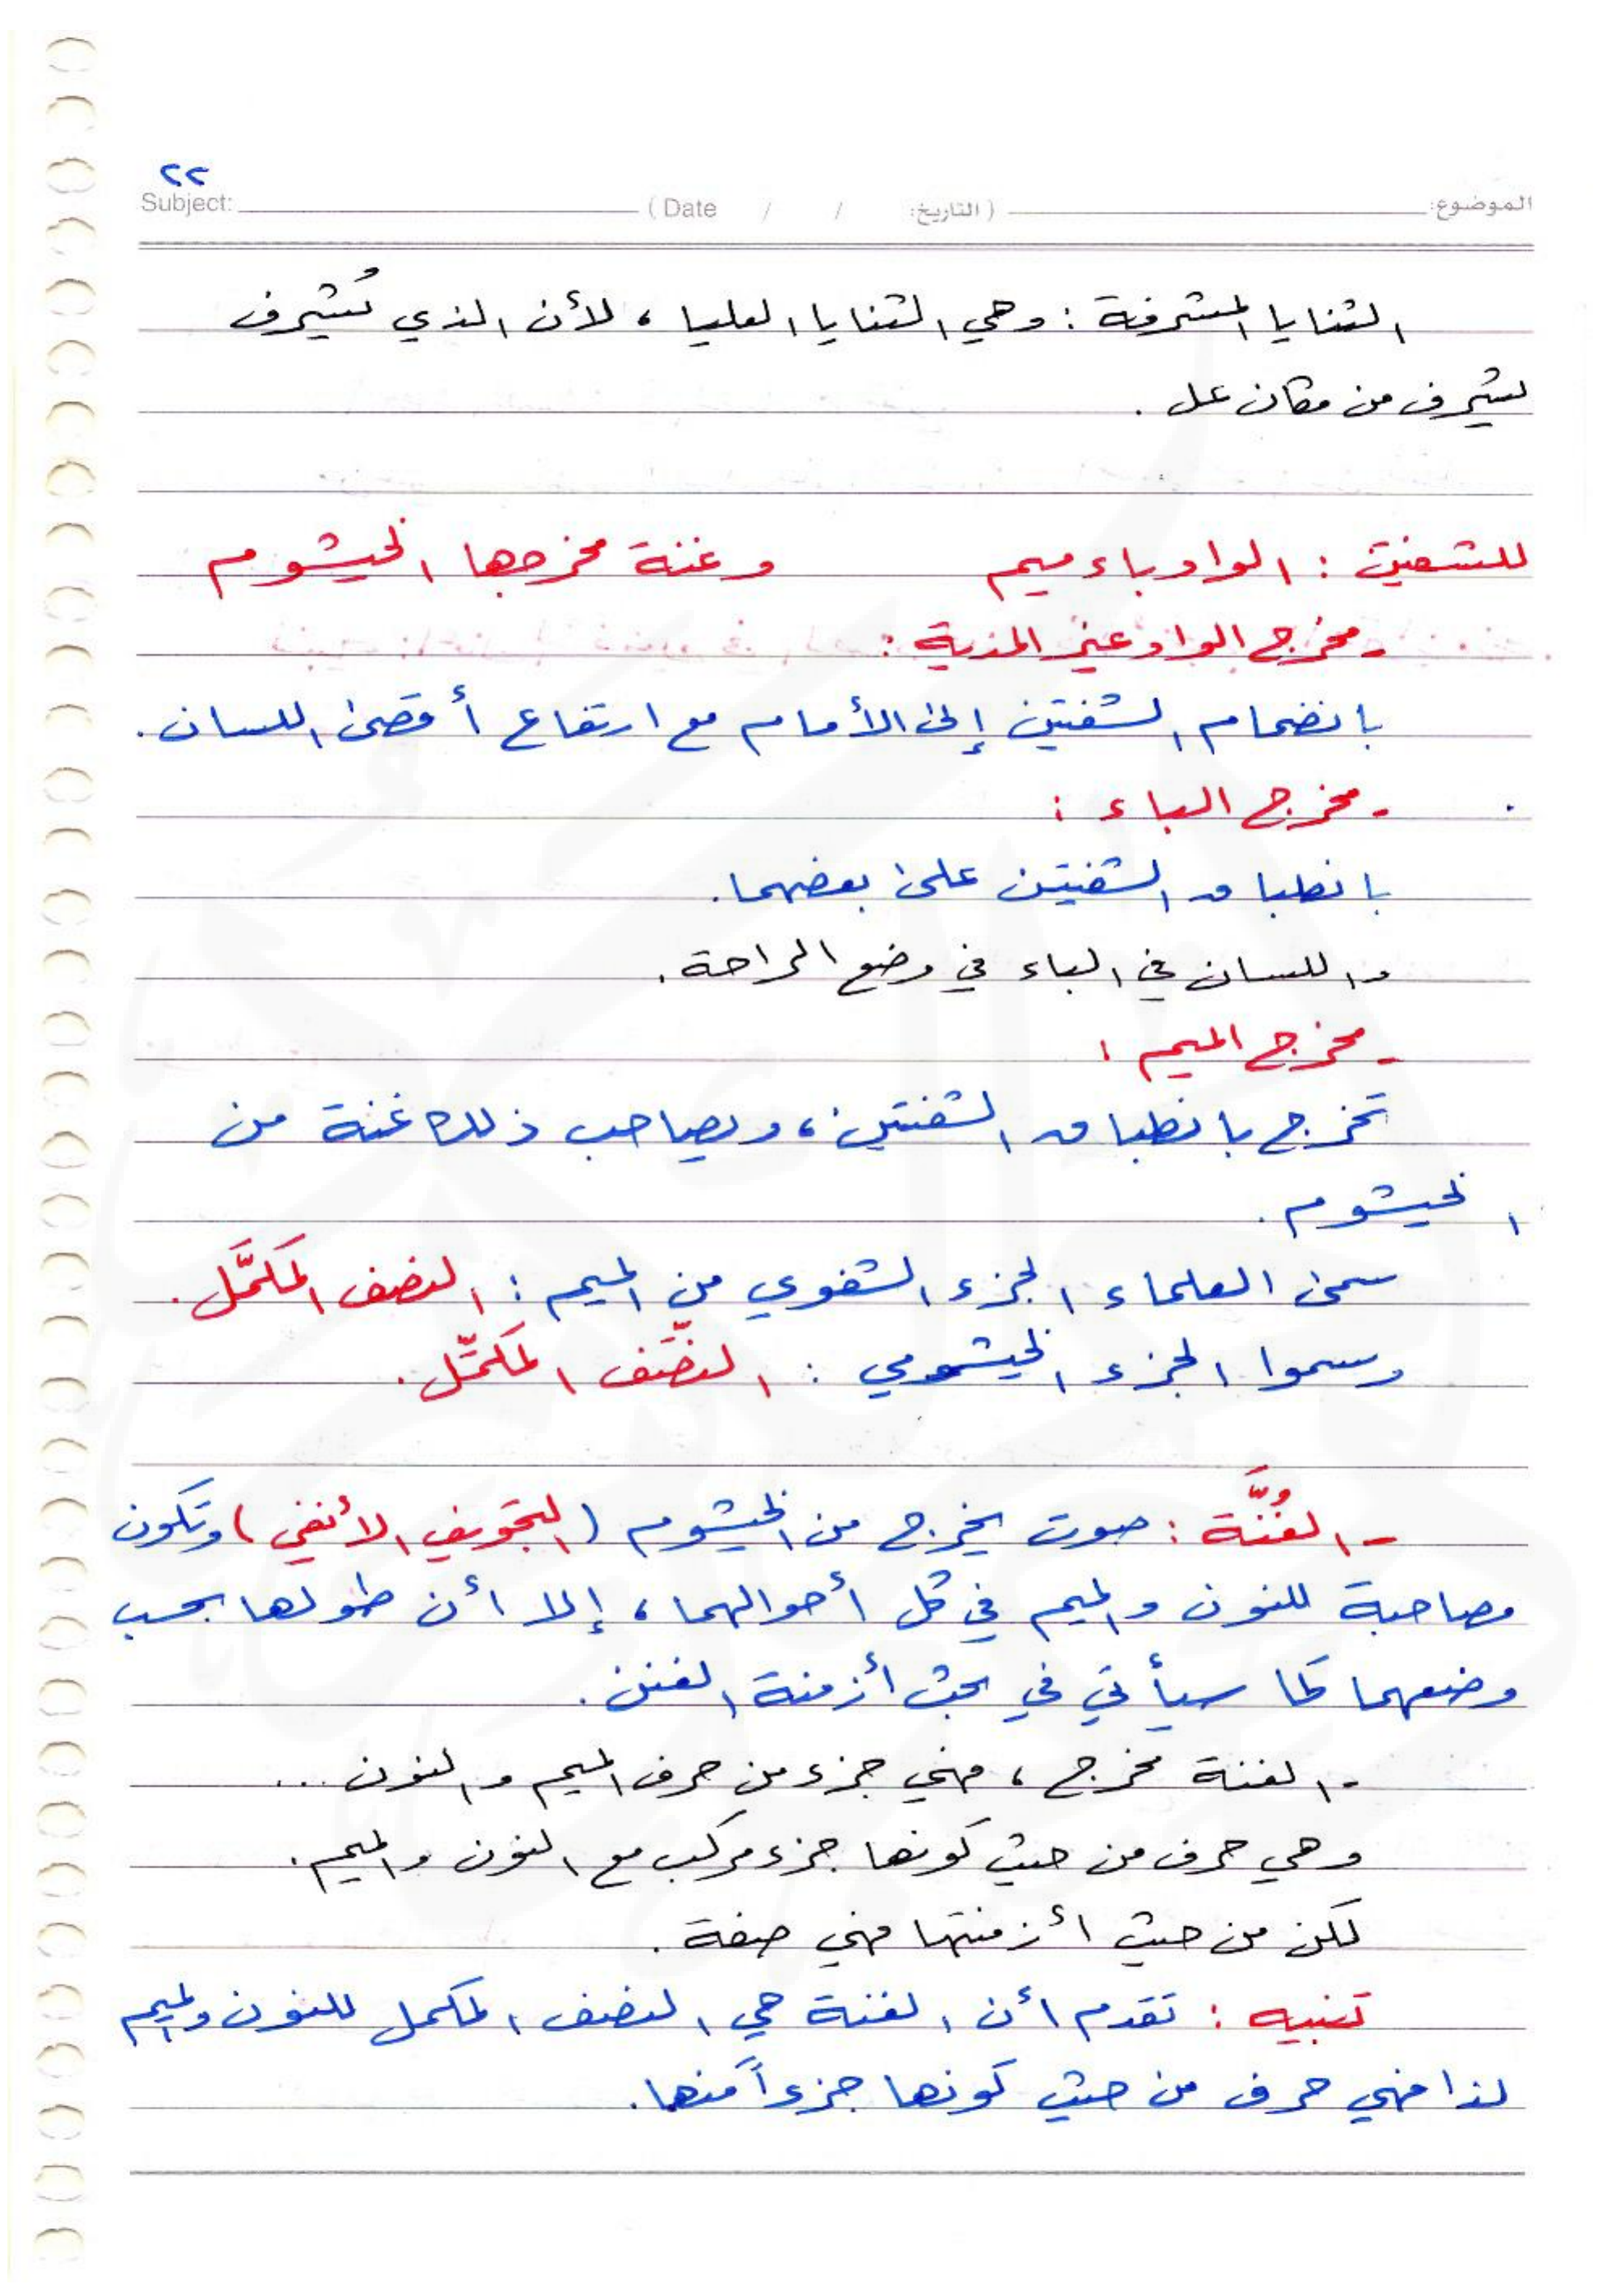 ٢٢
Subject: (Date / / التاريخ:) الموضوع:
الثنايا المشرفة : وهي الثنايا العليا ، لأن الذي يُشرف
يشرف من مكان عل .
للشفتين : الواو باء ميم وغنة مخرجها الخيشوم
- مخرج الواو غير المدية :
بانضمام الشفتين إلى الأمام مع ارتفاع أقصى اللسان .
- مخرج الباء :
بانطباق الشفتين على بعضهما .
واللسان في الباء في وضع الراحة .
- مخرج الميم :
تخرج بانطباق الشفتين ، ويصاحب ذلك غنة من
الخيشوم .
سمى العلماء الجزء الشفوي من الميم : النصف المكمَّل .
وسموا الجزء الخيشومي : النصف المكمِّل .
- الغُنَّة : صوت يخرج من الخيشوم (التجويف الأنفي) وتكون
مصاحبة للنون والميم في كل أحوالهما ، إلا أن طولها بحسب
وضعهما كما سيأتي في بحث أزمنة الغنن .
- الغنة مخرج ، فهي جزء من حرف الميم والنون ...
وهي حرف من حيث كونها جزء مركب مع النون والميم .
لكن من حيث أزمنتها فهي صفة .
تنبيه : تقدم أن الغنة هي النصف المكمل للنون والميم
لذا فهي حرف من حيث كونها جزءاً منها .